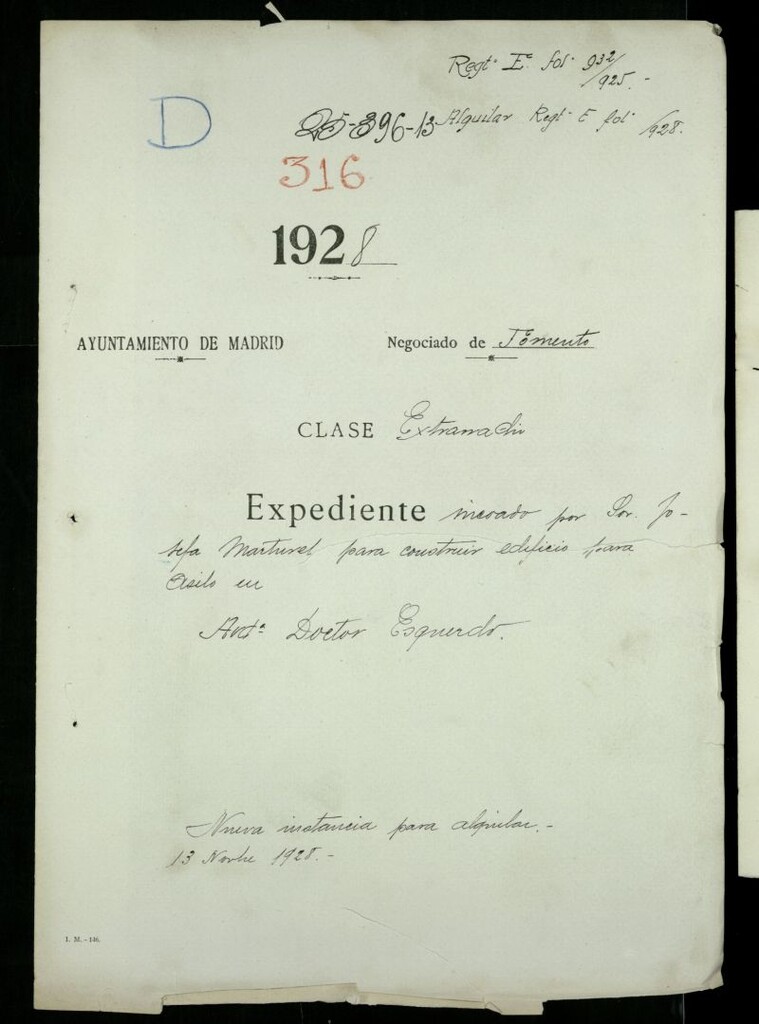 Regtº Eº folº 932/925.-
D
25-396-13 Alquilar Regtº E folº /928.
316
1928
AYUNTAMIENTO DE MADRID
Negociado de Fomento
CLASE
Expediente incoado por Sor. Jo-
sefa para construir edificio para
Asilo en
Avdª Doctor Esquerdo.
Nueva instancia para alquilar.-
13 Novbe 1928.-
I. M.-146.